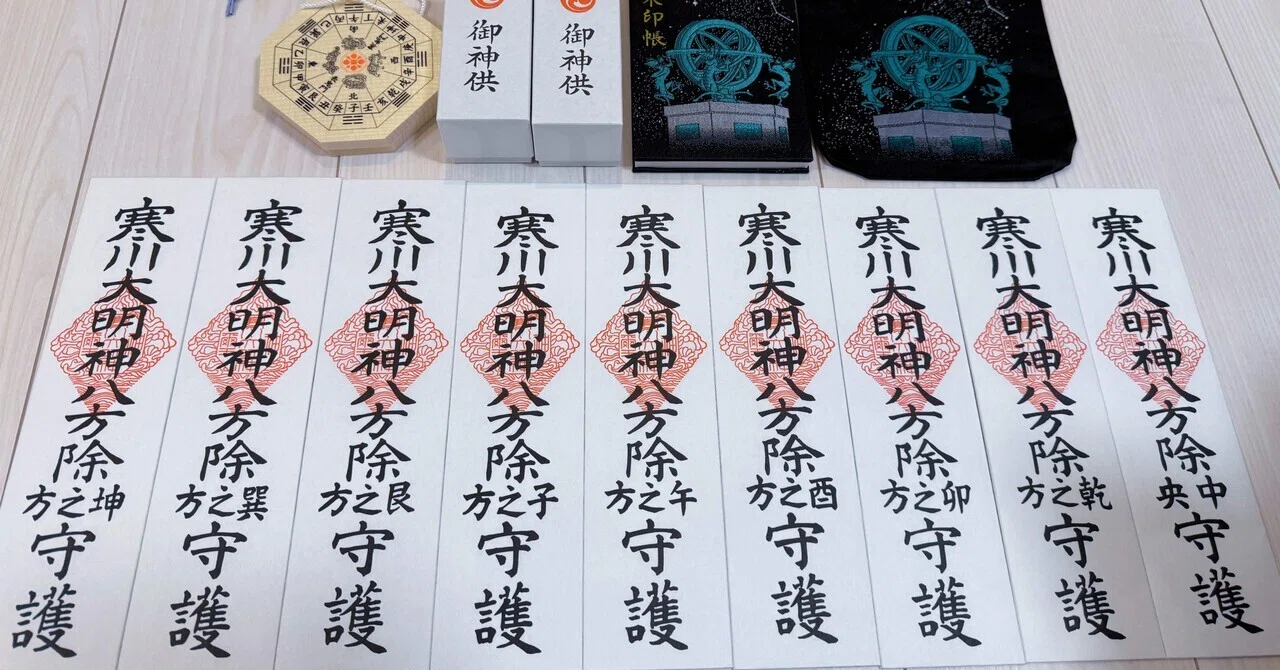 御神供
御神供
朱印帳
北
寒川大明神八方除坤之方守護
寒川大明神八方除巽之方守護
寒川大明神八方除艮之方守護
寒川大明神八方除子之方守護
寒川大明神八方除午之方守護
寒川大明神八方除酉之方守護
寒川大明神八方除卯之方守護
寒川大明神八方除乾之方守護
寒川大明神八方除中央守護